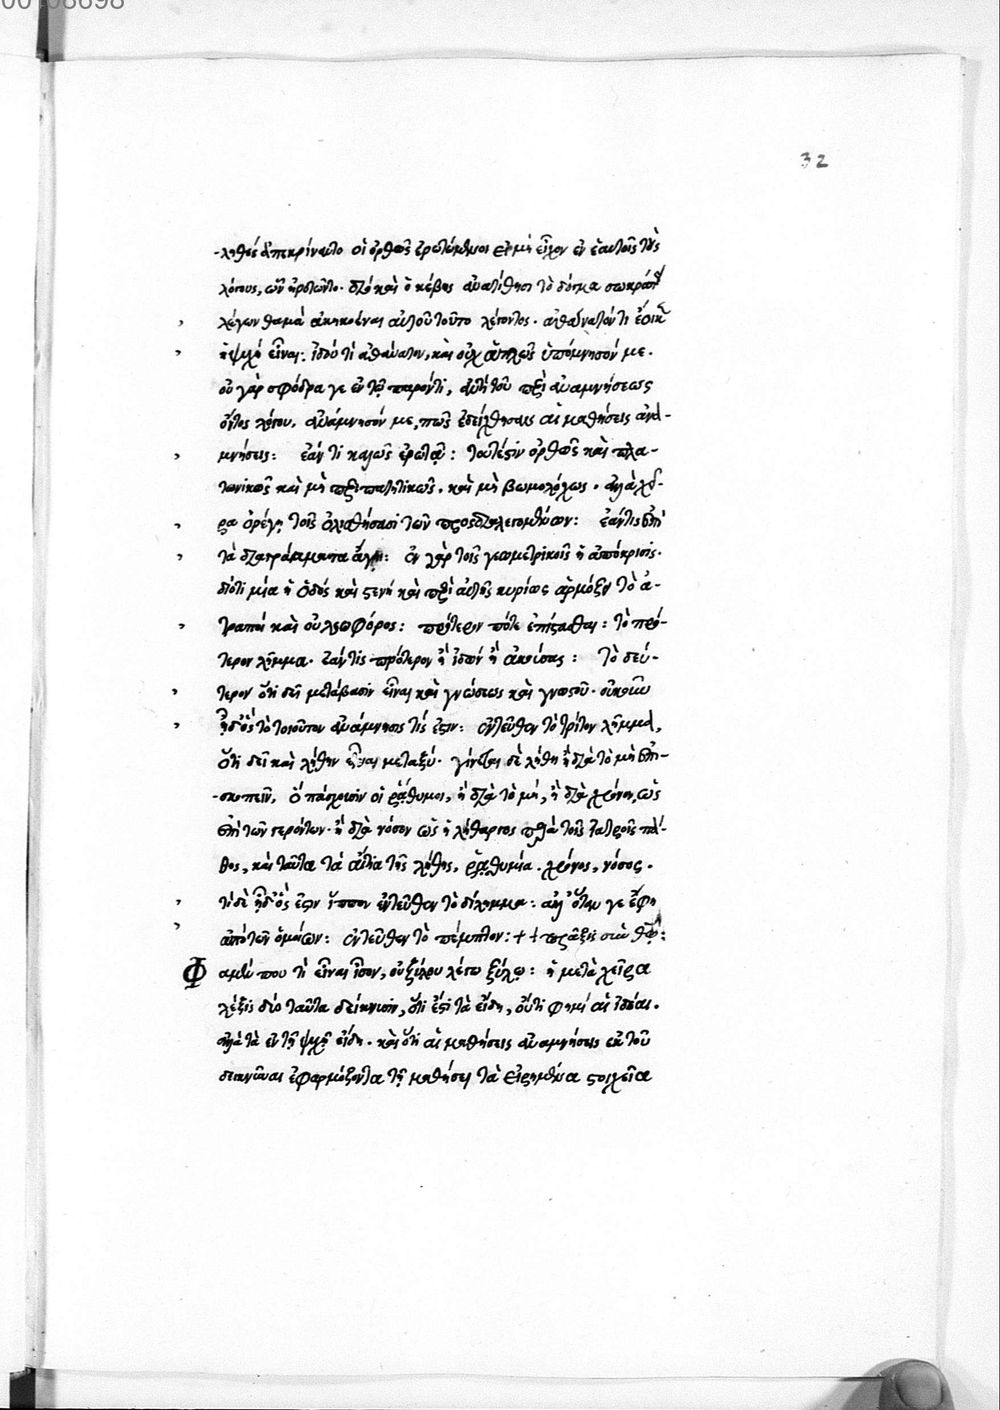 00108698
32
-ληθές ἀπεκρίναντο οἱ ὀρθῶς ἐρωτώμενοι εἰ μὴ εἶχον ἐν ἑαυτοῖς τοὺς
λόγους, ὧν ἠρωτῶντο. διὸ καὶ ὁ κέβης ἀνατίθησι τὸ δόγμα σωκράτει
λέγων θαμὰ ἀκηκοέναι αὐτοῦ τοῦτο λέγοντος. ἀθάνατόν τι ἔοικεν
ἡ ψυχὴ εἶναι: ἰδού τι ἀθάνατον, καὶ οὐχ ἁπλῶς ὑπόμνησόν με.
οὐ γὰρ σφόδρα γε ἐν τῷ παρόντι, αὐτῇ τοῦ περὶ ἀναμνήσεως
ὄντος λόγου. ἀνάμνησόν με, πῶς ἐδείχθησαν αἱ μαθήσεις ἀνα-
μνήσεις: ἐάν τι καλῶς ἐρωτᾷ: τουτέστιν ὀρθῶς καὶ πλα-
τωνικῶς καὶ μὴ περιπατητικῶς. καὶ μὴ βωμολόχως. ἀλλὰ χεῖ-
ρα ὀρέγῃ τοῖς ὀλισθήσασι τῶν προσδιαλεγομένων: ἐάν τις ἐπὶ
τὰ διαγράμματα ἄγῃ: ἐν γὰρ τοῖς γεωμετρικοῖς ἡ ἀπόκρισις.
διότι μία ἡ ὁδός καὶ στενὴ καὶ περὶ αὐτῆς κυρίως ἁρμόζει τὸ ἀ-
τραποὶ καὶ οὐ λεωφόρος: πρότερον πότε ἐπίστασθαι: τὸ πρό-
τερον λῆμμα. ἐάν τις πρότερον ἢ ἰδὼν ἢ ἀκούσας: τὸ δεύ-
τερον ὅτι δεῖ μετάβασιν εἶναι καὶ γνώσεως καὶ γνωστοῦ. οὐκοῦν
τὸ τοιοῦτον ἀνάμνησίς τίς ἐστιν: ἐντεῦθεν τὸ τρίτον λῆμμα,
ὅτι δεῖ καὶ λήθην εἶναι μεταξύ. γίνεται δὲ λήθη ἢ διὰ τὸ μὴ ἐπι-
-σκοπεῖν, ὃ πάσχουσιν οἱ ῥάθυμοι, ἢ διὰ τὸ μή, ἢ διὰ χρόνον, ὡς
ἐπὶ τῶν γερόντων. ἢ διὰ νόσον ὡς ἡ λήθαργος παρὰ τοῖς ἰατροῖς πά-
θος, καὶ ταῦτα τὰ αἴτια τῆς λήθης, ῥᾳθυμία. χρόνος, νόσος.
ἵππον ἐντεῦθεν τὸ δίλημμα: ἀλλ' ὅταν γε ἔφη
ἀπὸ τῶν ὁμοίων: ἐντεῦθεν τὸ πέμπτον: + + πρᾶξις σὺν θεῷ:
Φαμέν που τι εἶναι ἴσον, οὐ ξύλον λέγω ξύλῳ: ἡ μετὰ χεῖρα
λέξις δύο ταῦτα δείκνυσιν, ὅτι ἐστὶ τὰ εἴδη, οὔτι φημὶ αἱ ἰδέαι.
ἀλλὰ τὰ ἐν τῇ ψυχῇ εἴδη. καὶ ὅτι αἱ μαθήσεις ἀναμνήσεις ἐκ τοῦ
δεικνύναι ἐφαρμόζοντα τῇ μαθήσει τὰ εἰρημένα στοιχεῖα